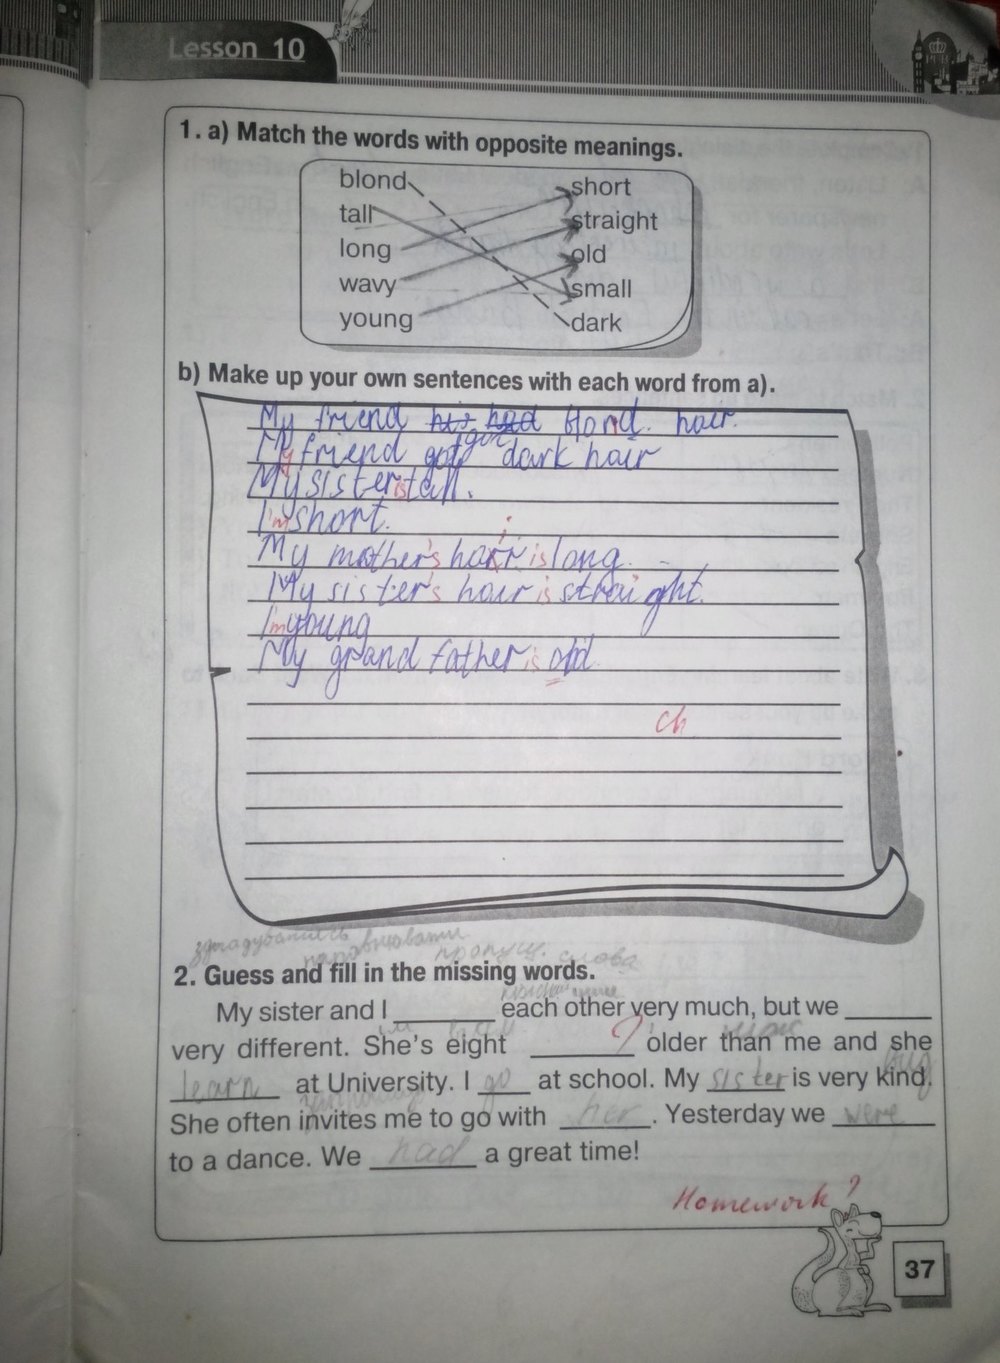 Lesson 10
1. a) Match the words with opposite meanings.
blond short
tall straight
long old
wavy small
young dark
b) Make up your own sentences with each word from a).
My friend his had blond. hair.
My friend got got dark hair
My sister is tall.
I'm short.
My mother's hair is long.
My sister's hair is straight.
I'm young
My grand father is old
ch
пропущ. слова
2. Guess and fill in the missing words.
My sister and I ________ each other very much, but we ________
very different. She's eight ________ ? older than me and she
learn at University. I go at school. My sister is very kind.
She often invites me to go with her. Yesterday we were
to a dance. We had a great time!
Homework?
37